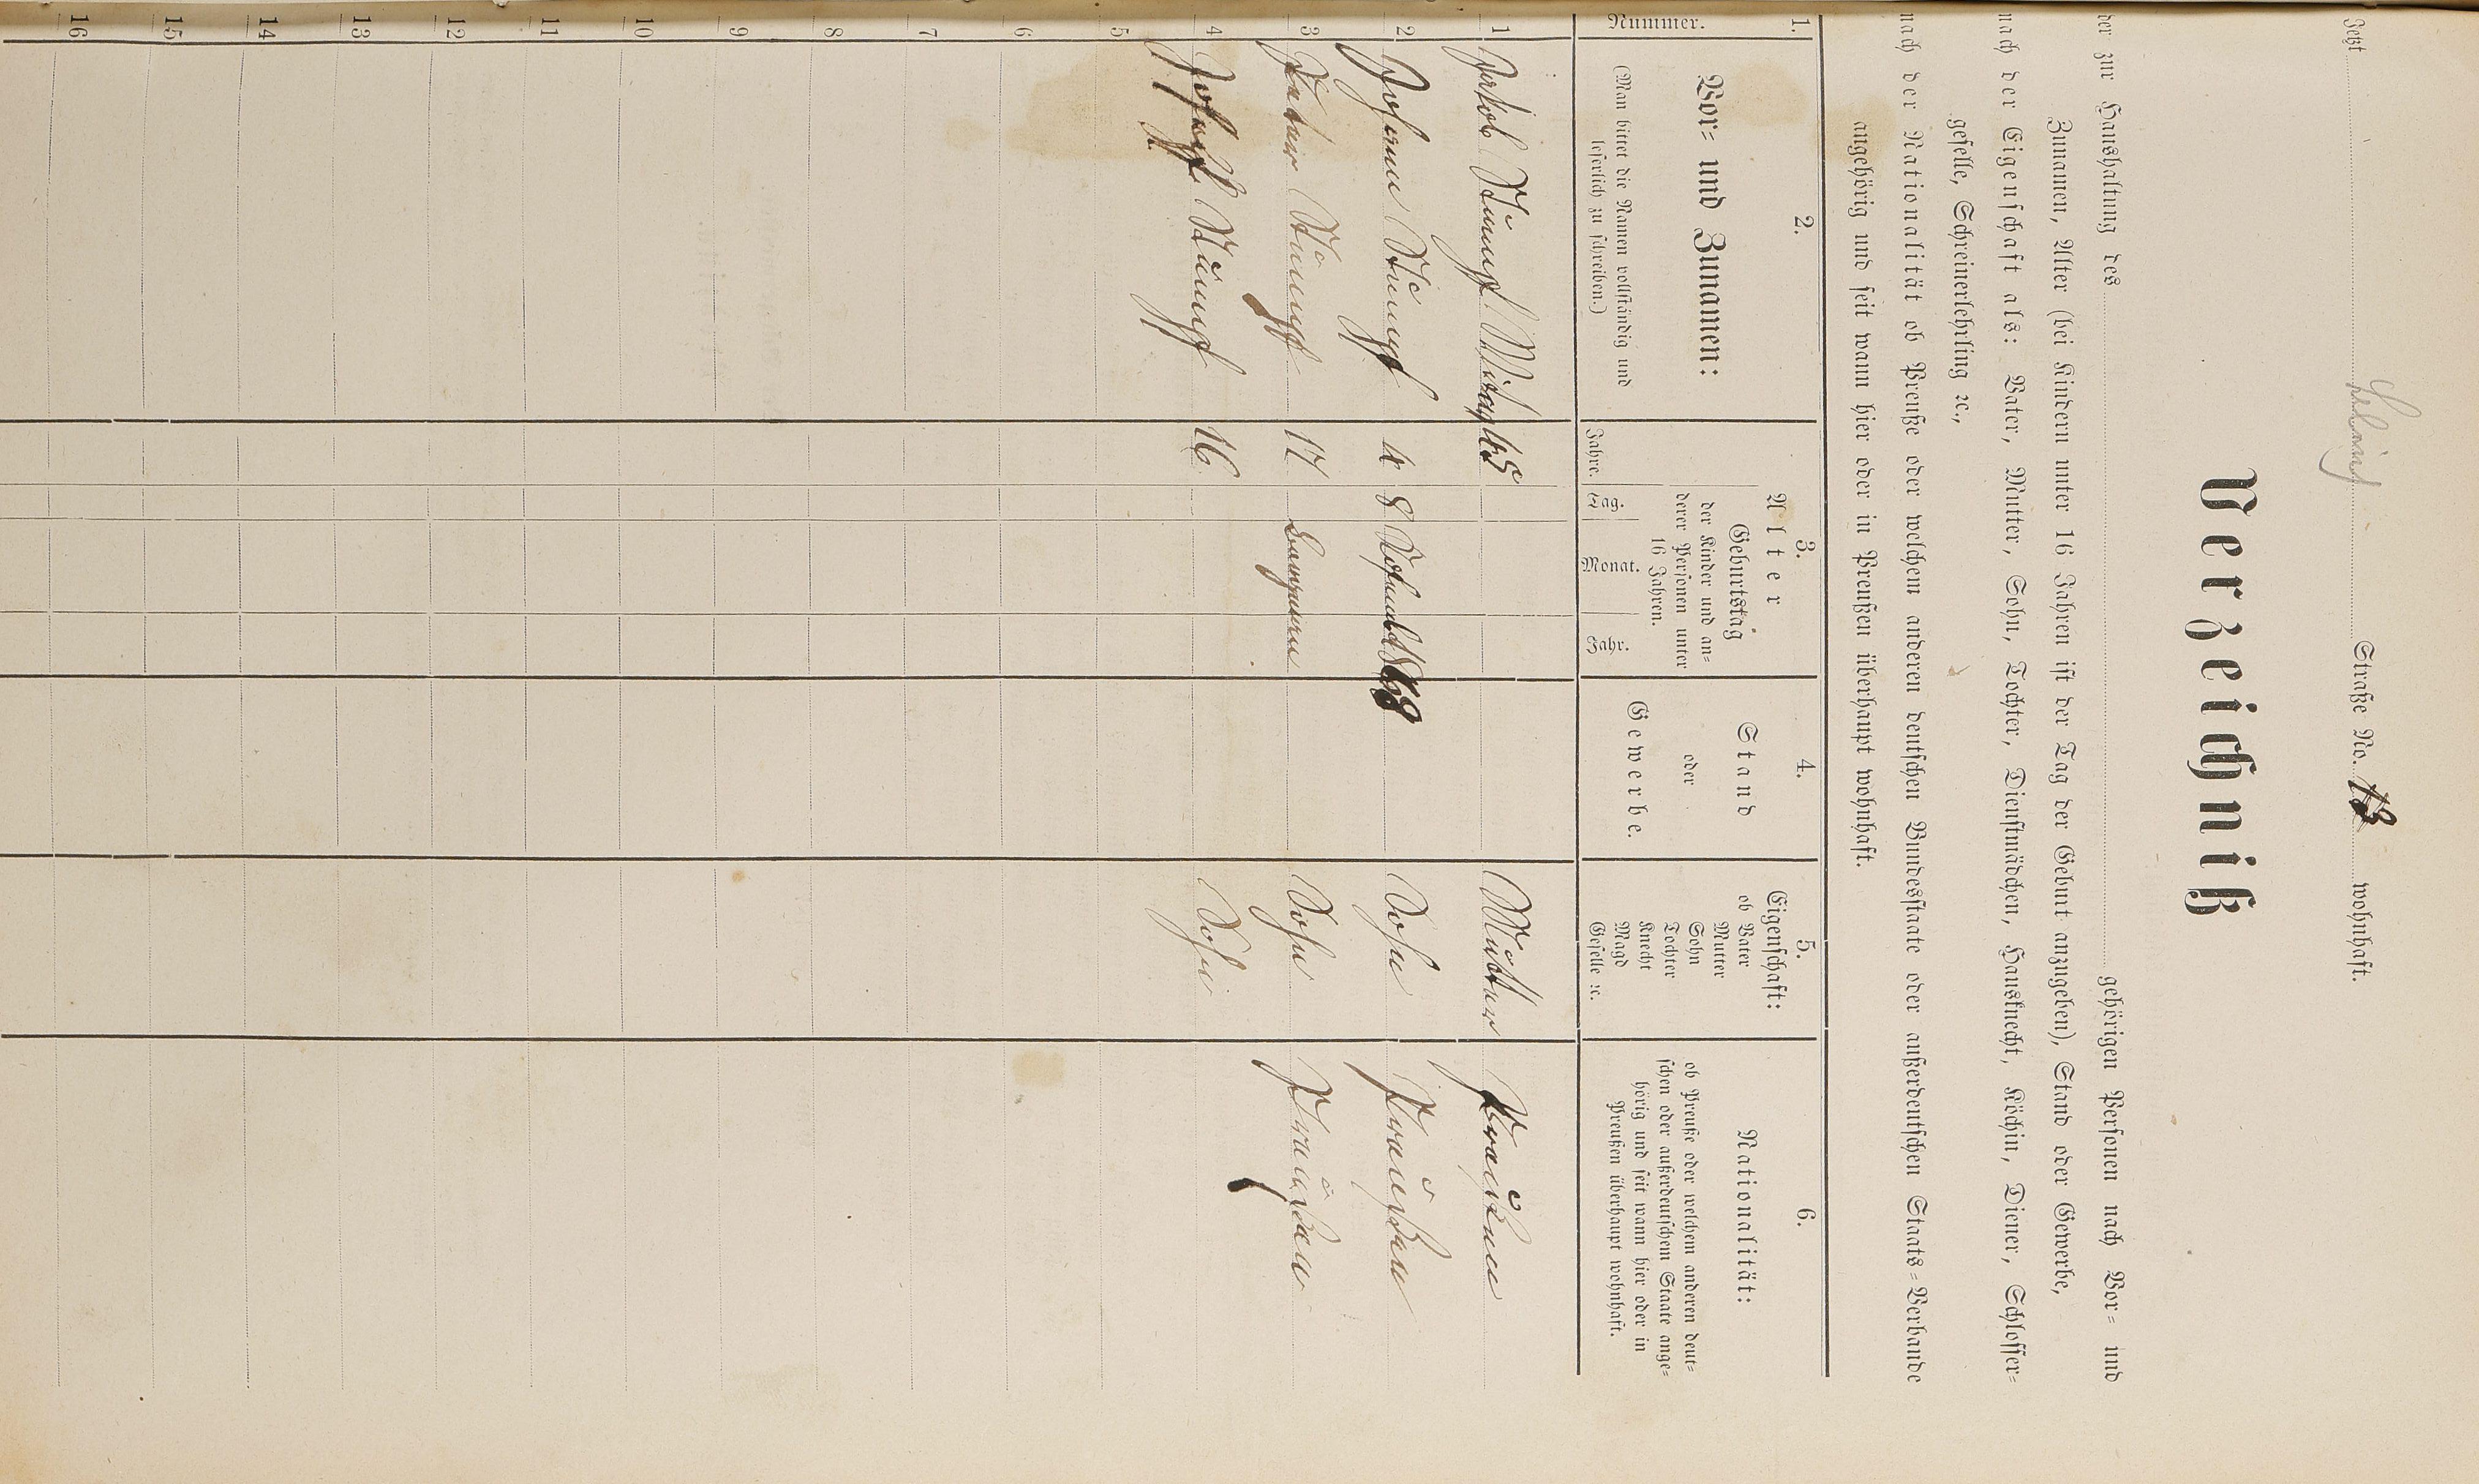 Jetzt Straße No. 13 wohnhaft.
Verzeichniß
der zur Haushaltung des gehörigen Personen nach Vor= und
Zunamen, Alter (bei Kindern unter 16 Jahren ist der Tag der Geburt anzugeben), Stand oder Gewerbe,
nach der Eigenschaft als: Vater, Mutter, Sohn, Tochter, Dienstmädchen, Hausknecht, Köchin, Diener, Schlosser=
geselle, Schreinerlehrling ꝛc.,
nach der Nationalität ob Preuße oder welchem anderen deutschen Bundesstaate oder außerdeutschen Staats=Verbande
angehörig und seit wann hier oder in Preußen überhaupt wohnhaft.
1. 2. 3. 4. 5. 6.
Nummer.
Vor= und Zunamen:
(Man bittet die Namen vollständig und
leserlich zu schreiben.)
Alter
Geburtstag
der Kinder und an=
derer Personen unter
16 Jahren.
Jahre. Tag. Monat. Jahr.
Stand
oder
Gewerbe.
Eigenschaft:
ob Vater
Mutter
Sohn
Tochter
Knecht
Magd
Geselle ꝛc.
Nationalität:
ob Preuße oder welchem anderen deut=
schen oder außerdeutschem Staate ange=
hörig und seit wann hier oder in
Preußen überhaupt wohnhaft.
1 Jakob Stumpf 45 Mutter
2 Johann Stumpf 4 8 Sohn Preußen
3 Peter Stumpf 17 Sohn Preußen
4 Joseph Stumpf 16 Sohn
5
6
7
8
9
10
11
12
13
14
15
16